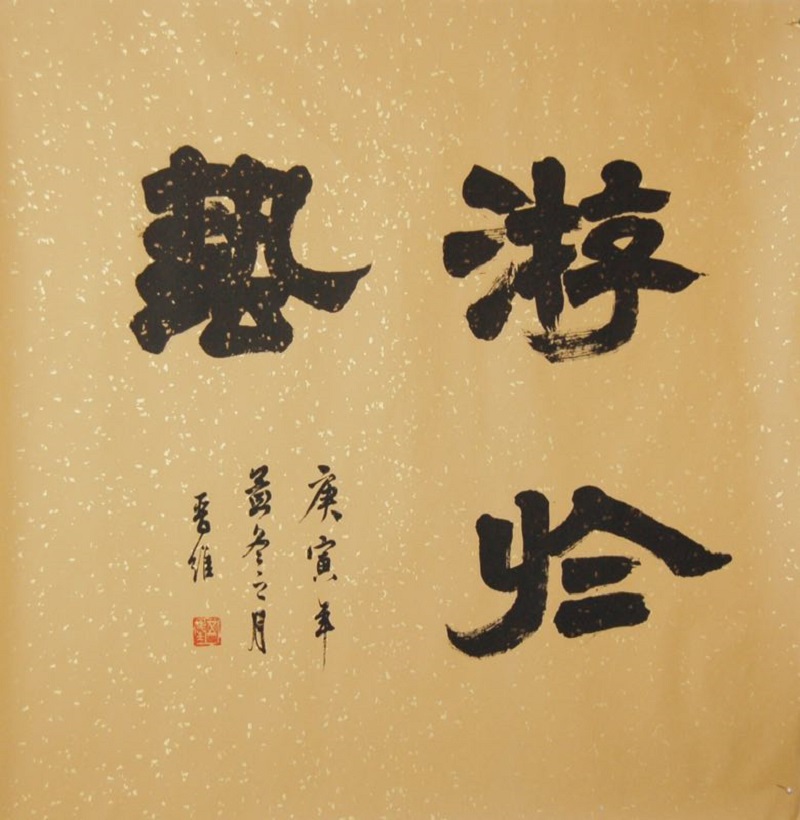 游於
藝
庚寅年
孟冬之月
晋維